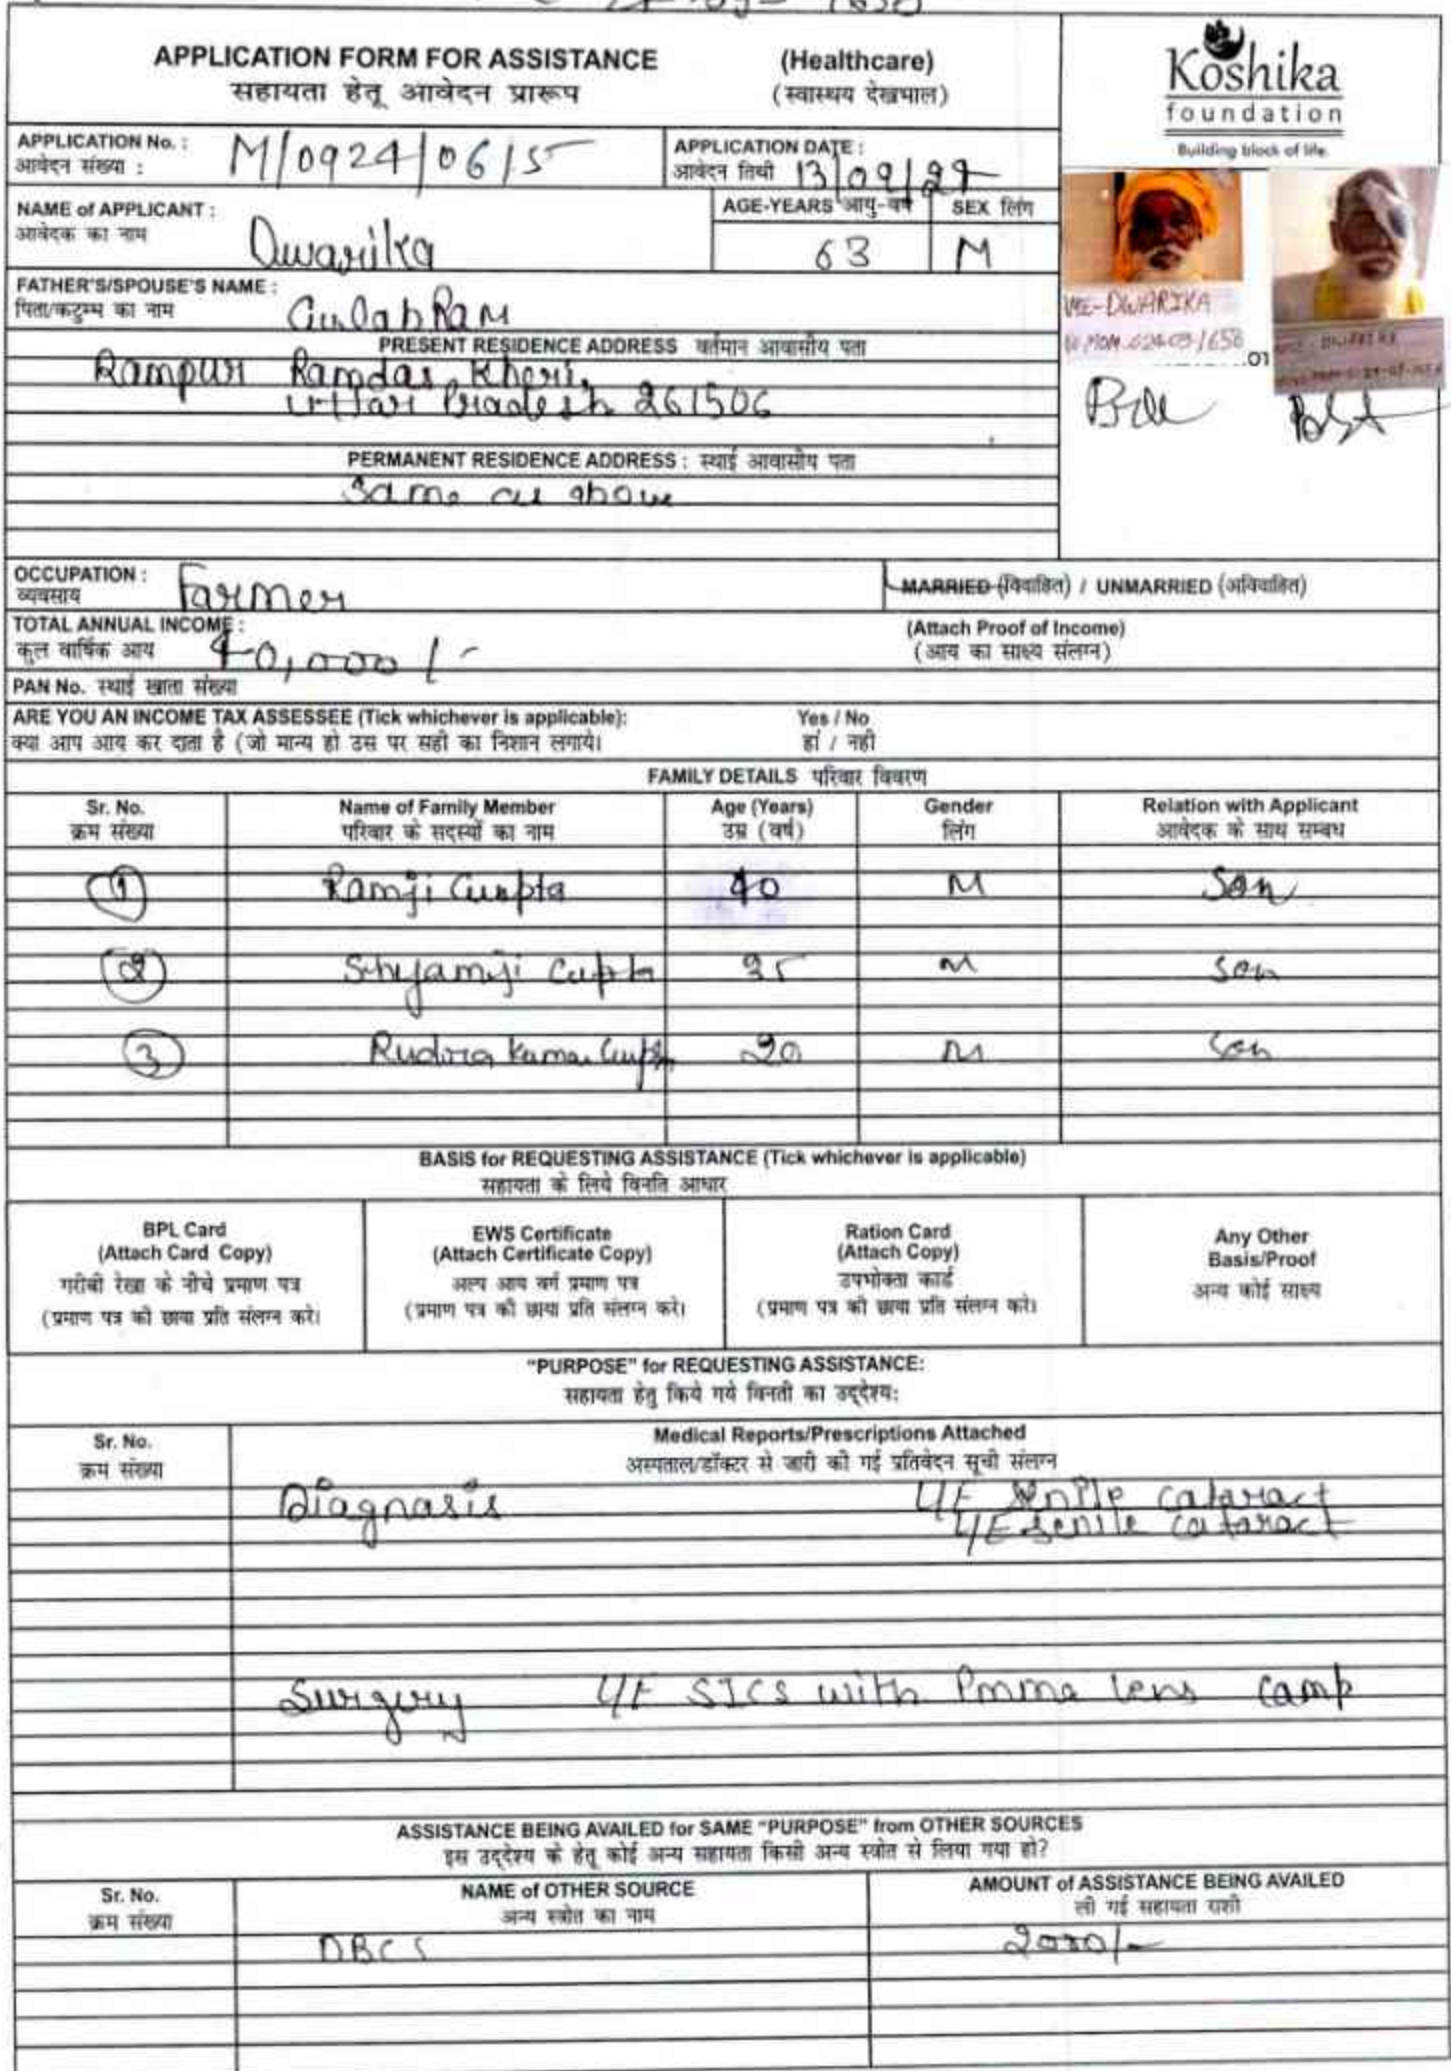 APPLICATION FORM FOR ASSISTANCE (Healthcare)
सहायता हेतू आवेदन प्रारूप (स्वास्थय देखभाल)
Koshika
foundation
Building block of life.
APPLICATION No. :
आवेदन संख्या :
M/0924/0615
APPLICATION DATE :
आवेदन तिथी
13/09/24
NAME of APPLICANT :
आवेदक का नाम
Dwarika
AGE-YEARS आयु-वर्ष
63
SEX लिंग
M
FATHER'S/SPOUSE'S NAME :
पिता/कटुम्ब का नाम
Gulab Ram
PRESENT RESIDENCE ADDRESS वर्तमान आवासीय पता
Rampur Ramdas, Kheri,
Uttar Pradesh 261506
DWARIKA
PERMANENT RESIDENCE ADDRESS : स्थाई आवासीय पता
Same as above
OCCUPATION :
व्यवसाय
Farmer
MARRIED (विवाहित) / UNMARRIED (अविवाहित)
TOTAL ANNUAL INCOME :
कुल वार्षिक आय
40,000/-
(Attach Proof of Income)
(आय का साक्ष्य संलग्न)
PAN No. स्थाई खाता संख्या
ARE YOU AN INCOME TAX ASSESSEE (Tick whichever is applicable): Yes / No
क्या आप आय कर दाता है (जो मान्य हो उस पर सही का निशान लगाये। हां / नही
FAMILY DETAILS परिवार विवरण
Sr. No. Name of Family Member Age (Years) Gender Relation with Applicant
क्रम संख्या परिवार के सदस्यों का नाम उम्र (वर्ष) लिंग आवेदक के साथ सम्बध
1 Ramji Gupta 40 M Son
2 Shyamji Gupta 35 M Son
3 Rudra Kumar Gupta 20 M Son
BASIS for REQUESTING ASSISTANCE (Tick whichever is applicable)
सहायता के लिये विनति आधार
BPL Card
(Attach Card Copy)
गरीबी रेखा के नीचे प्रमाण पत्र
(प्रमाण पत्र की छाया प्रति संलग्न करे।
EWS Certificate
(Attach Certificate Copy)
अल्प आय वर्ग प्रमाण पत्र
(प्रमाण पत्र की छाया प्रति संलग्न करे।
Ration Card
(Attach Copy)
उपभोक्ता कार्ड
(प्रमाण पत्र की छाया प्रति संलग्न करे।
Any Other
Basis/Proof
अन्य कोई साक्ष्य
"PURPOSE" for REQUESTING ASSISTANCE:
सहायता हेतु किये गये विनती का उद्देश्य:
Sr. No.
क्रम संख्या
Medical Reports/Prescriptions Attached
अस्पताल/डॉक्टर से जारी की गई प्रतिवेदन सूची संलग्न
Diagnasis
Senile cataract
Senile cataract
Surgery L/E SICS with Pmma lens camp
ASSISTANCE BEING AVAILED for SAME "PURPOSE" from OTHER SOURCES
इस उद्देश्य के हेतू कोई अन्य सहायता किसी अन्य स्त्रोत से लिया गया हो?
Sr. No. NAME of OTHER SOURCE AMOUNT of ASSISTANCE BEING AVAILED
क्रम संख्या अन्य स्त्रोत का नाम ली गई सहायता राशी
DBCS 2000/-